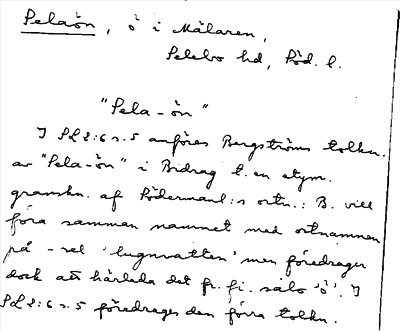 Pelaön, ö i Mälaren,
Selebo hd, Söd. l.
"Pela-ön"
I SL 2:6 s. 5 anföres Bergströms tolkn.
av "Pela-ön" i Bidrag t. en etym.
granskn. af Södermanl:s ortn.: B. vill
föra samman namnet med ortnamnen
på -sel 'lugnvatten' men föredrager
dock att härleda det fr. fi. salo 'ö'. I
SL 2:6 s. 5 föredrages den förra tolkn.